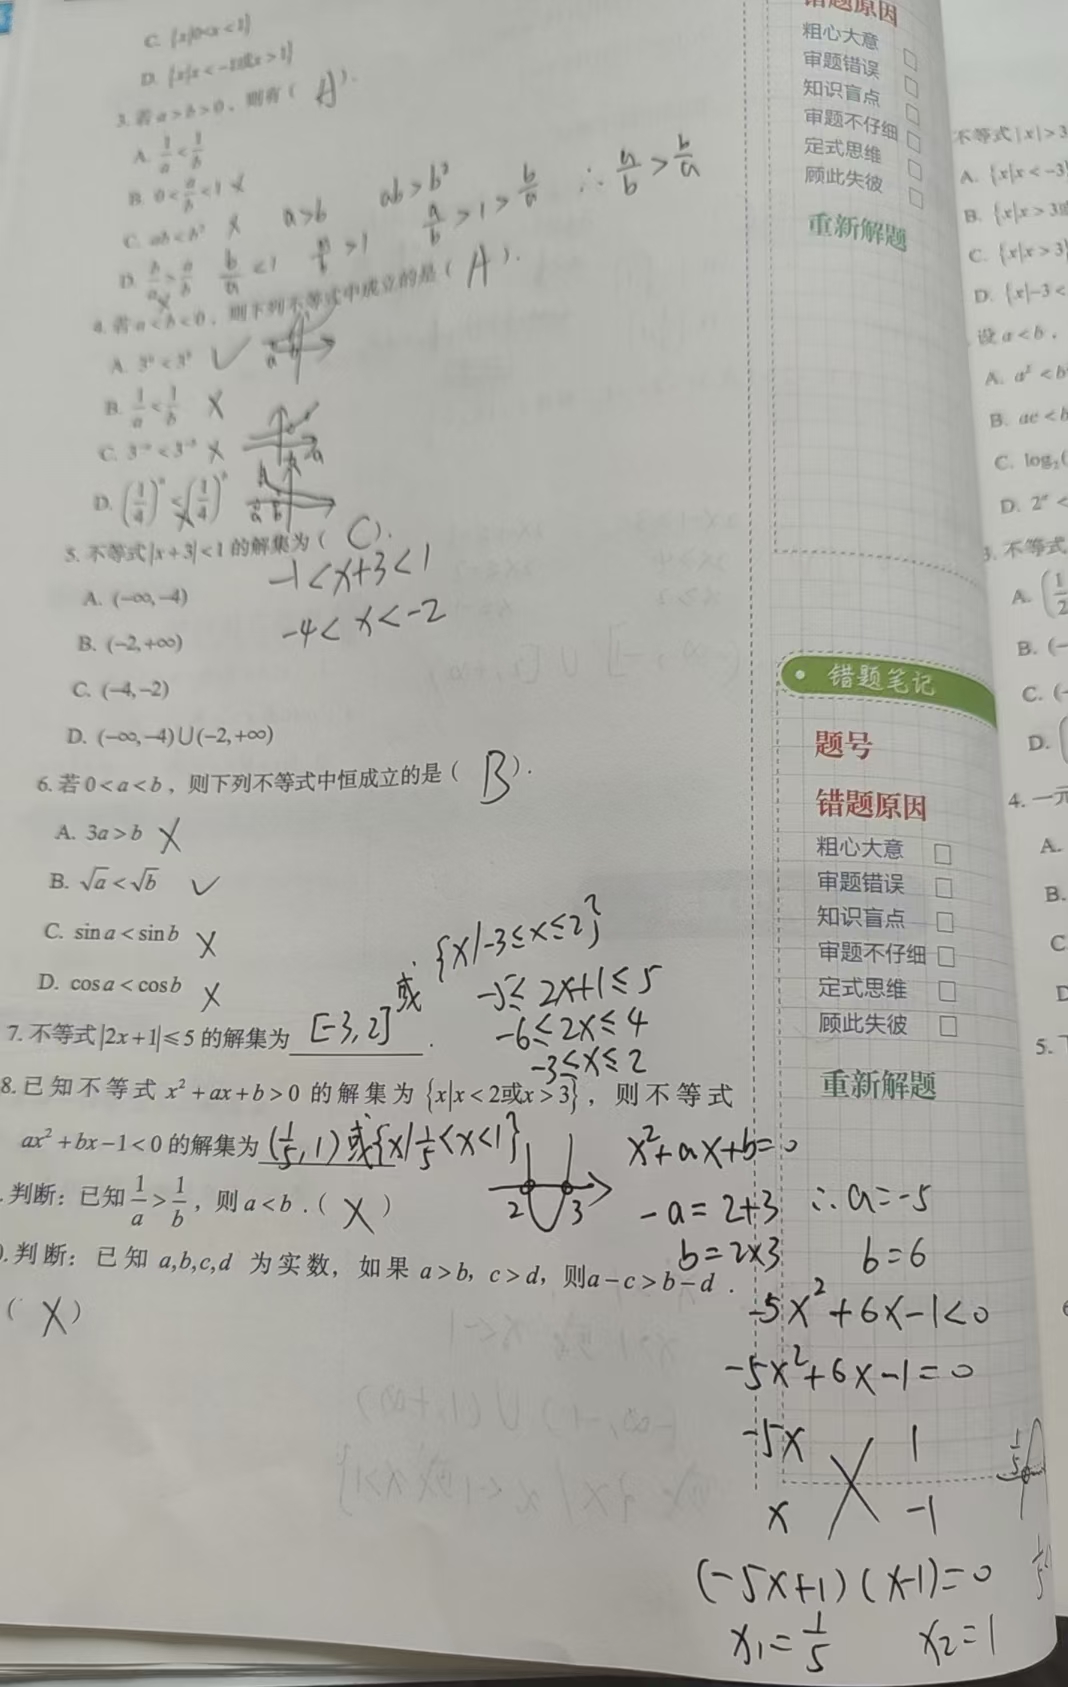 C. {x|0<x<1}
D. {x|x<-1或x>1}
3. 若a>b>0，则有（ A ）.
A. 1/a<1/b
B. 0<a/b<1 ×
C. ab<b² × a>b ab>b²
D. b/a>a/b × b/a<1 a/b>1 a/b>1>b/a ∴a/b>b/a
4. 若a<b<0，则下列不等式中成立的是（ A ）.
A. 3ᵃ<3ᵇ √
B. 1/a<1/b ×
C. 3⁻ᵃ<3⁻ᵇ ×
5. 不等式|x+3|<1的解集为（ C ）.
-1<x+3<1
A. (-∞,-4)
-4<x<-2
B. (-2,+∞)
C. (-4,-2)
D. (-∞,-4)∪(-2,+∞)
6. 若0<a<b，则下列不等式中恒成立的是（ B ）.
A. 3a>b ×
B. √a<√b √
C. sin a<sin b ×
D. cos a<cos b ×
7. 不等式|2x+1|≤5的解集为 [-3,2] 或 {x|-3≤x≤2} .
-5≤2x+1≤5
-6≤2x≤4
-3≤x≤2
8. 已知不等式 x²+ax+b>0 的解集为 {x|x<2或x>3}，则不等式
ax²+bx-1<0的解集为 (1/5,1)或{x|1/5<x<1}
2 3
x²+ax+b=0
-a=2+3 ∴a=-5
b=2×3 b=6
-5x²+6x-1<0
-5x²+6x-1=0
-5x 1
x -1
(-5x+1)(x-1)=0
x₁=1/5 x₂=1
.判断：已知1/a>1/b，则a<b.（ × ）
).判断：已知 a,b,c,d 为实数，如果 a>b, c>d，则a-c>b-d .
（ × ）
错题原因
粗心大意 □
审题错误 □
知识盲点 □
审题不仔细 □
定式思维 □
顾此失彼 □
重新解题
错题笔记
题号
错题原因
粗心大意 □
审题错误 □
知识盲点 □
审题不仔细 □
定式思维 □
顾此失彼 □
重新解题
不等式|x|>3
A. {x|x<-3
B. {x|x>3
C. {x|x>3}
D. {x|-3<
设a<b，
A. a²<b
B. ac<b
C. log₂(
D. 2ᵃ<
3. 不等式
A. (1/2
B. (-
C. (-
D. (
4. 一元
A.
B.
C
D
5.